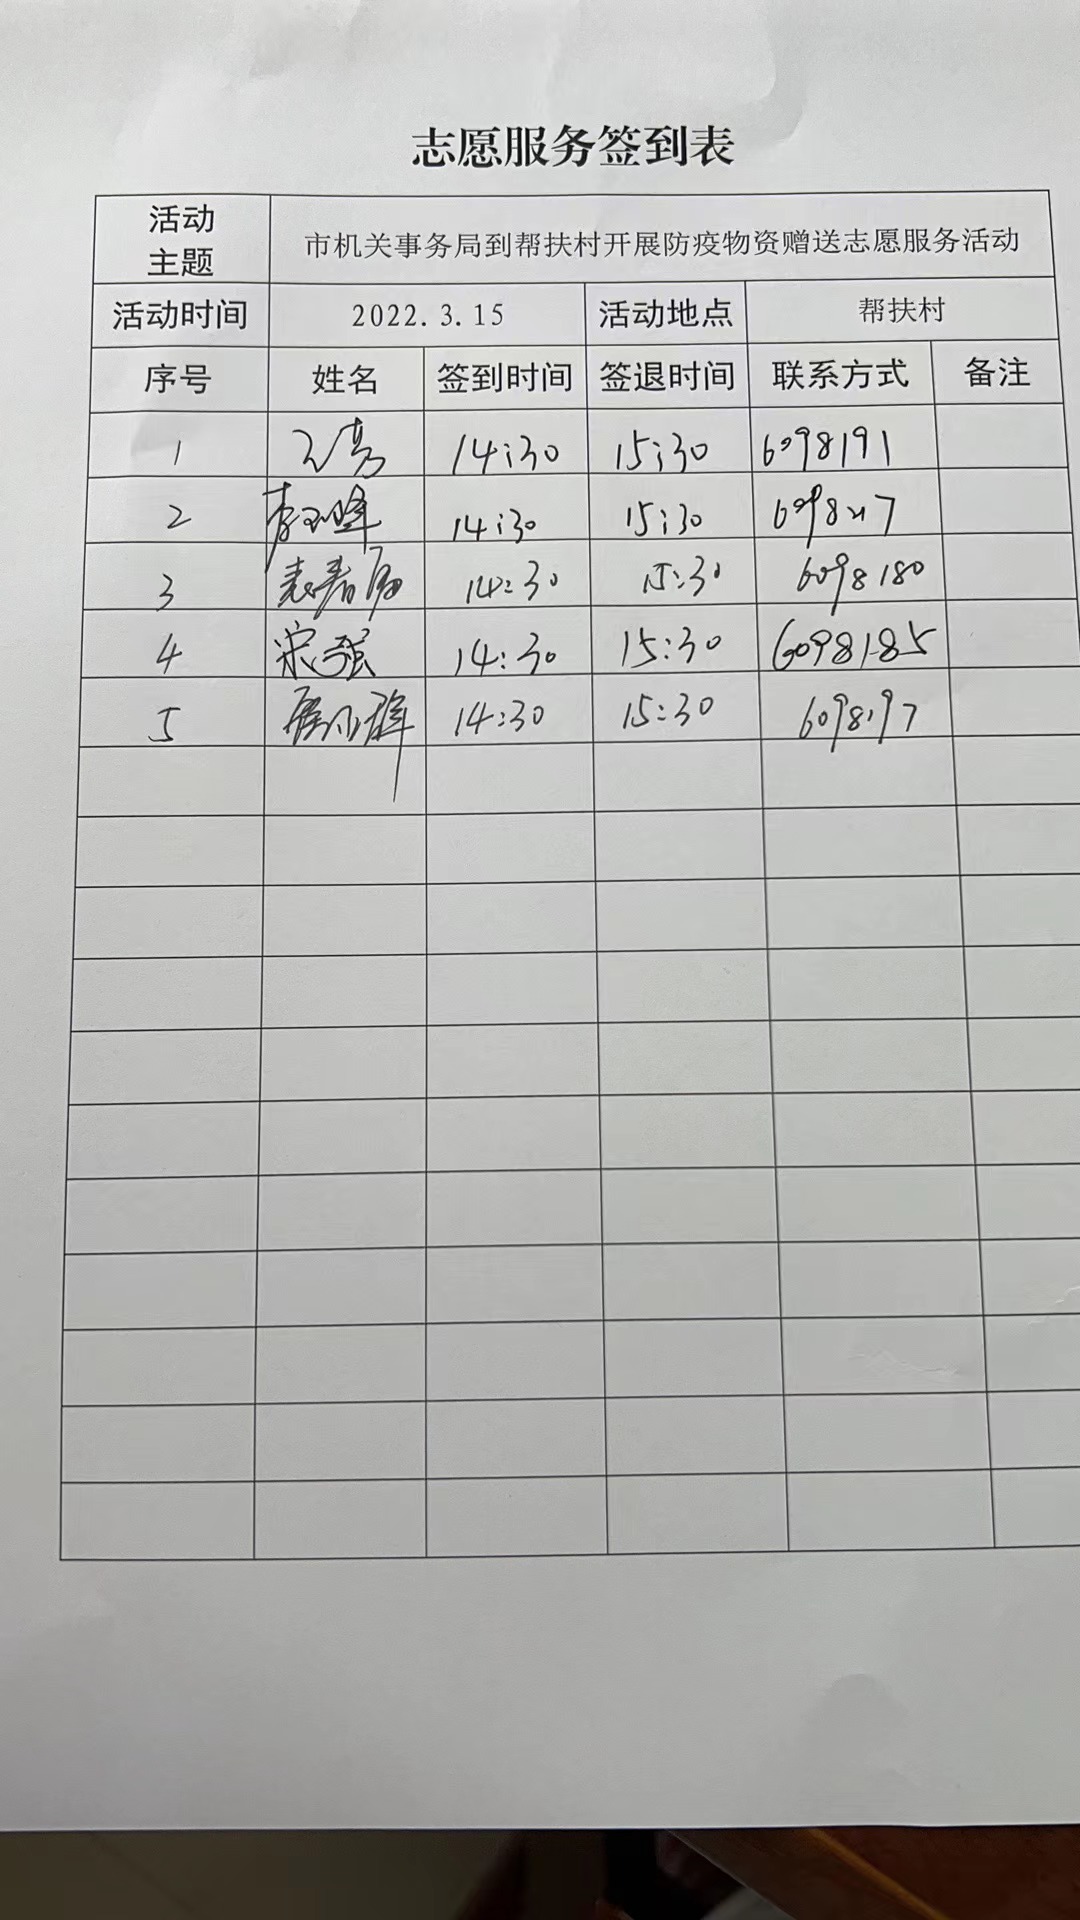 志愿服务签到表
活动
主题
市机关事务局到帮扶村开展防疫物资赠送志愿服务活动
活动时间 2022.3.15 活动地点 帮扶村
序号 姓名 签到时间 签退时间 联系方式 备注
1 14:30 15:30 6098191
2 14:30 15:30
3 14:30 15:30 6098180
4 宋强 14:30 15:30 6098185
5 14:30 15:30 6098197